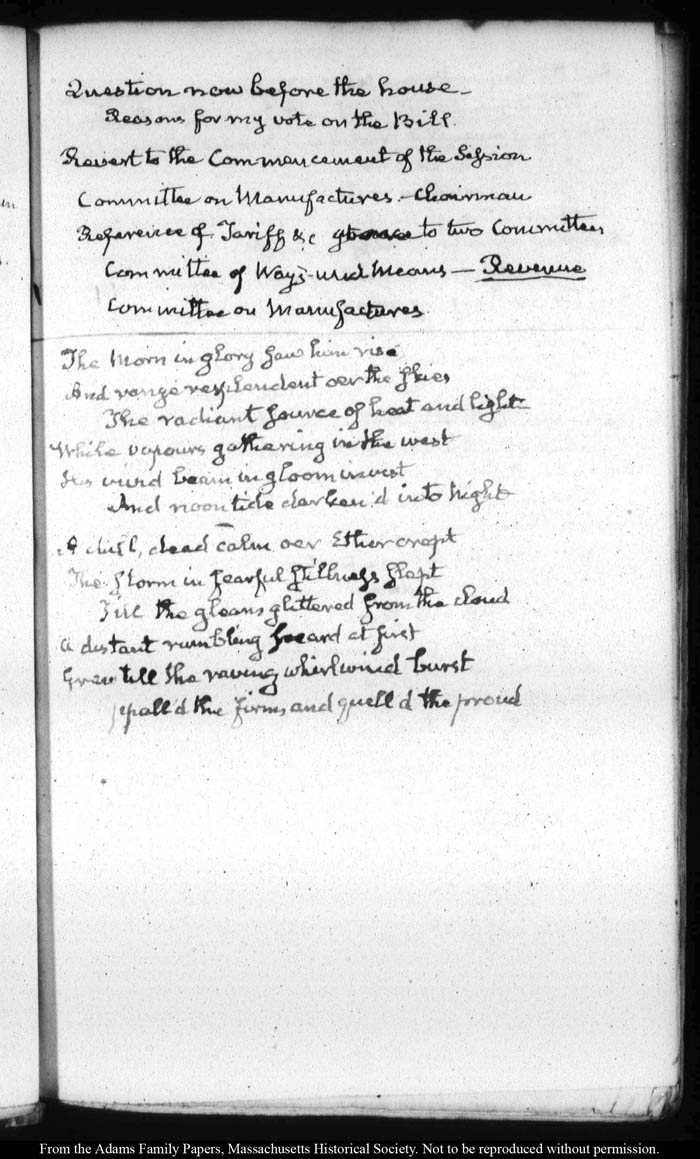 Question now before the house –
Reasons for my vote on the Bill.
Revert to the Commencement of the Session
Committee on Manufactures – Chairman
Reference of Tariff &c to two Committees
Committee of Ways and Means – Revenue
Committee on Manufactures.
The Morn in glory saw him rise
And range resplendent oer the skies
The radiant source of heat and light
While vapours gathering in the west
His beam in gloom invest
And noontide darken'd into night
A dull, dead calm oer Ether crept
The storm in fearful stillness slept
Till the gleams glittered from the cloud
A distant rumbling heard at first
Grew till the raving whirlwind burst
pall'd the firm, and quell'd the proud
in
From the Adams Family Papers, Massachusetts Historical Society. Not to be reproduced without permission.